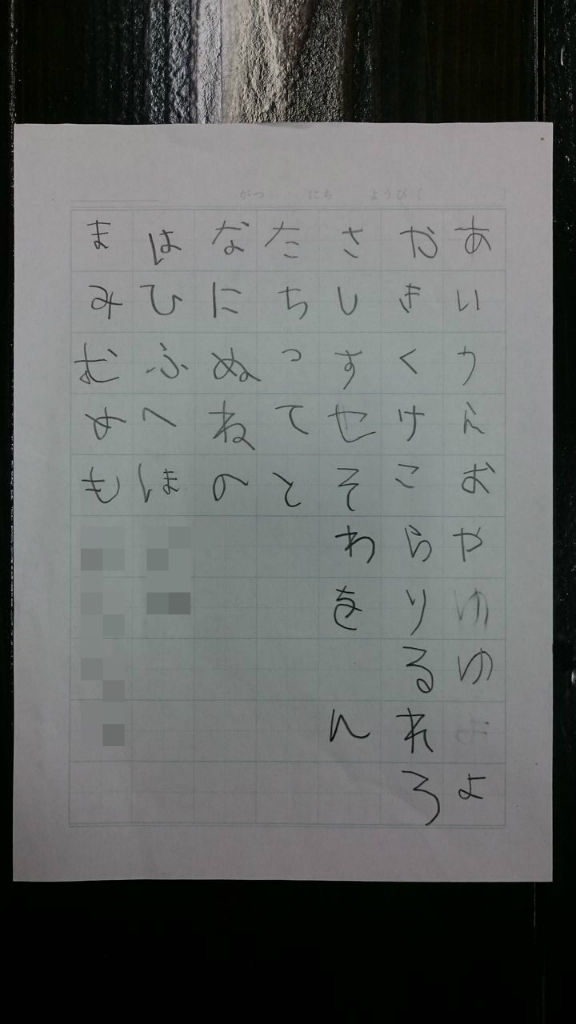 がつ にち ようび
あいうえおやゆゆよ
かきくけこらりるれろ
さしすせそわを ん
たちつてと
なにぬねの
はひふへほ
まみむめも